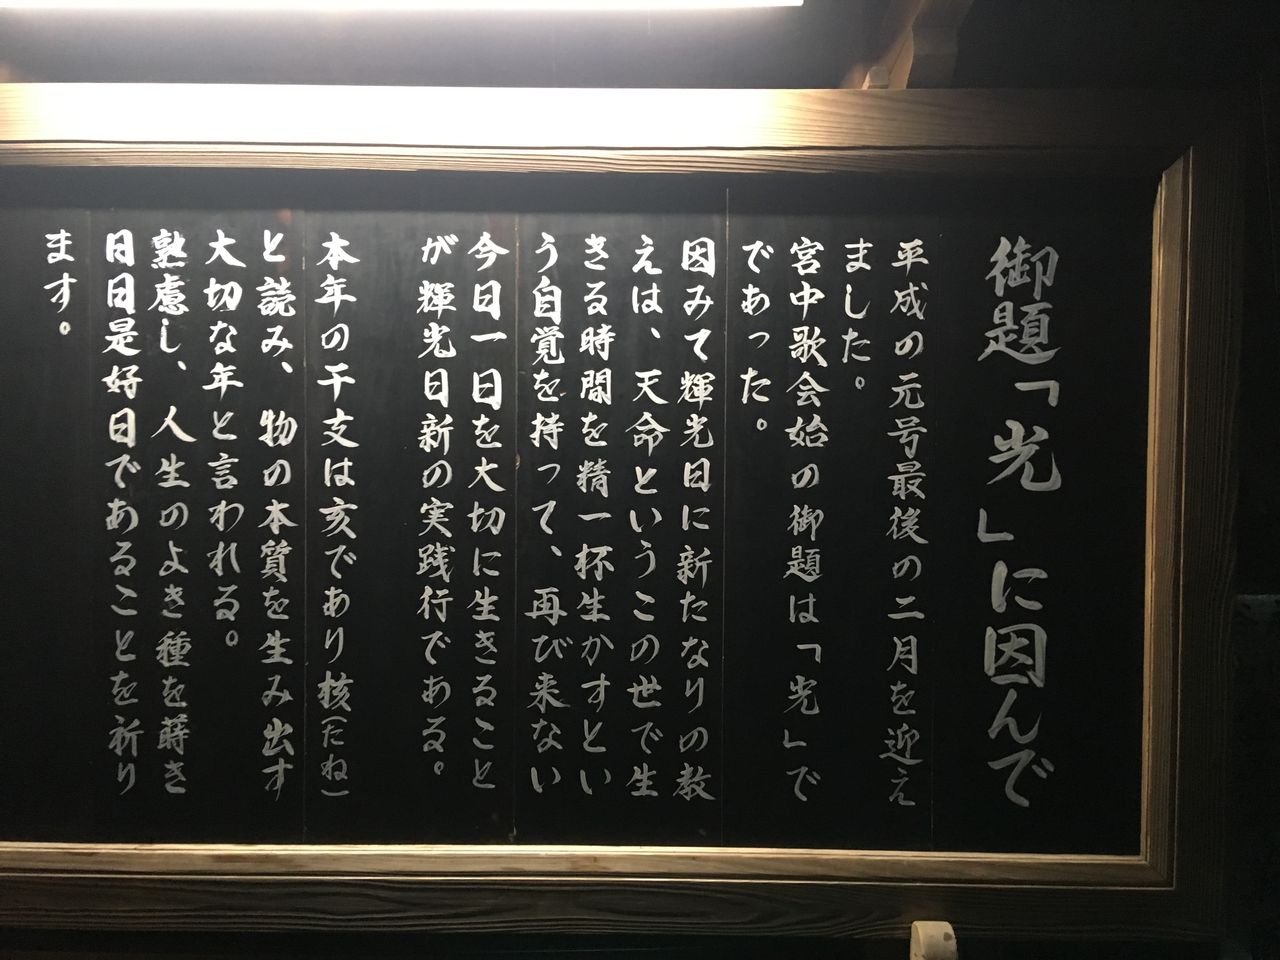 御題「光」に因んで
平成の元号最後の二月を迎え
ました。
宮中歌会始の御題は「光」で
であった。
因みて輝光日に新たなりの教
えは、天命というこの世で生
きる時間を精一杯生かすとい
う自覚を持って、再び来ない
今日一日を大切に生きること
が輝光日新の実践行である。
本年の干支は亥であり核(たね)
と読み、物の本質を生み出す
大切な年と言われる。
熟慮し、人生のよき種を蒔き
日日是好日であることを祈り
ます。